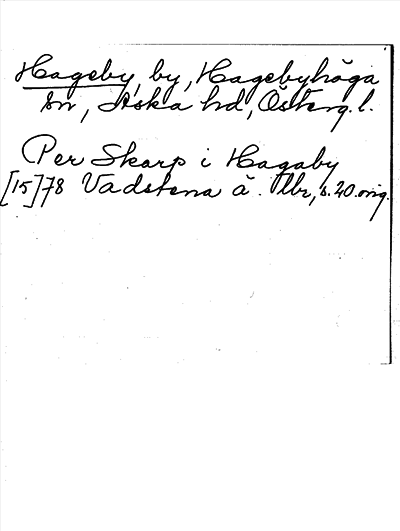 Hageby, by, Hagebyhöga
sn, Aska hd, Österg. l.
Per Skarp i Hagaby
[15]78 Vadstena ä. tbr, s. 20. orig.